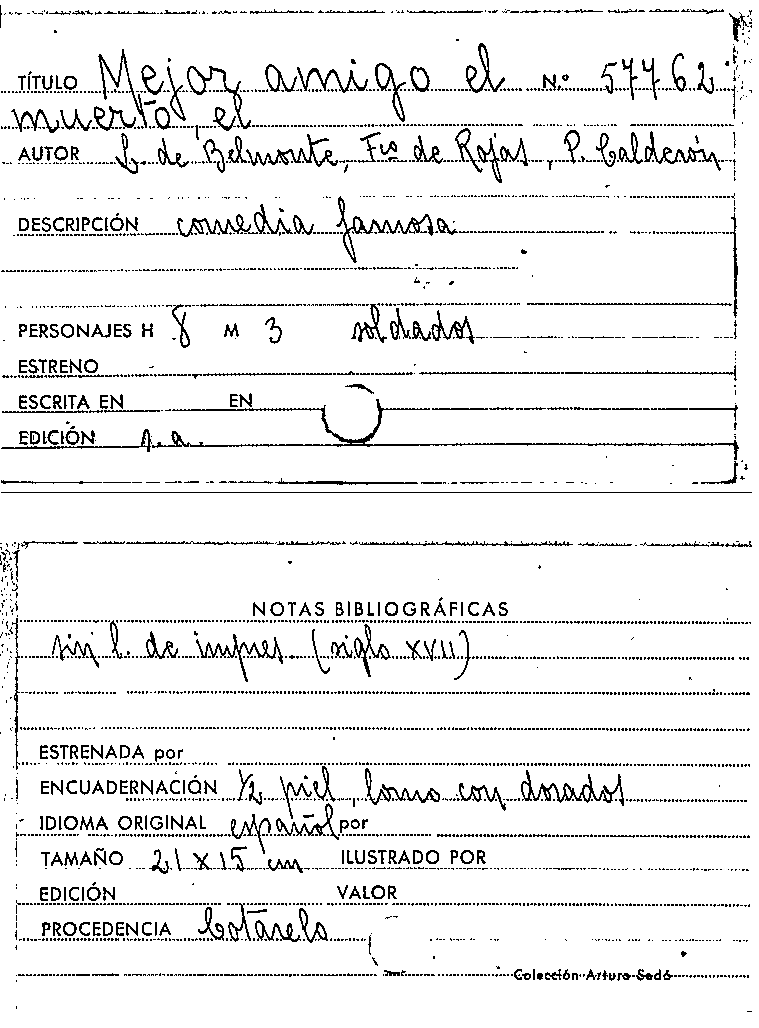 TÍTULO Mejor amigo el N.º 57762
muerto, el
AUTOR L. de Belmonte, Fco de Rojas, P. Calderón
DESCRIPCIÓN comedia famosa
PERSONAJES H 8 M 3 soldados
ESTRENO
ESCRITA EN EN
EDICIÓN s.a.
NOTAS BIBLIOGRÁFICAS
sin l. de impres. (siglo XVII)
ESTRENADA por
ENCUADERNACIÓN 1/2 piel, lomo con dorados
IDIOMA ORIGINAL español por
TAMAÑO 21 x 15 cm ILUSTRADO POR
EDICIÓN VALOR
PROCEDENCIA Cotarelo
Colección Arturo Sedó